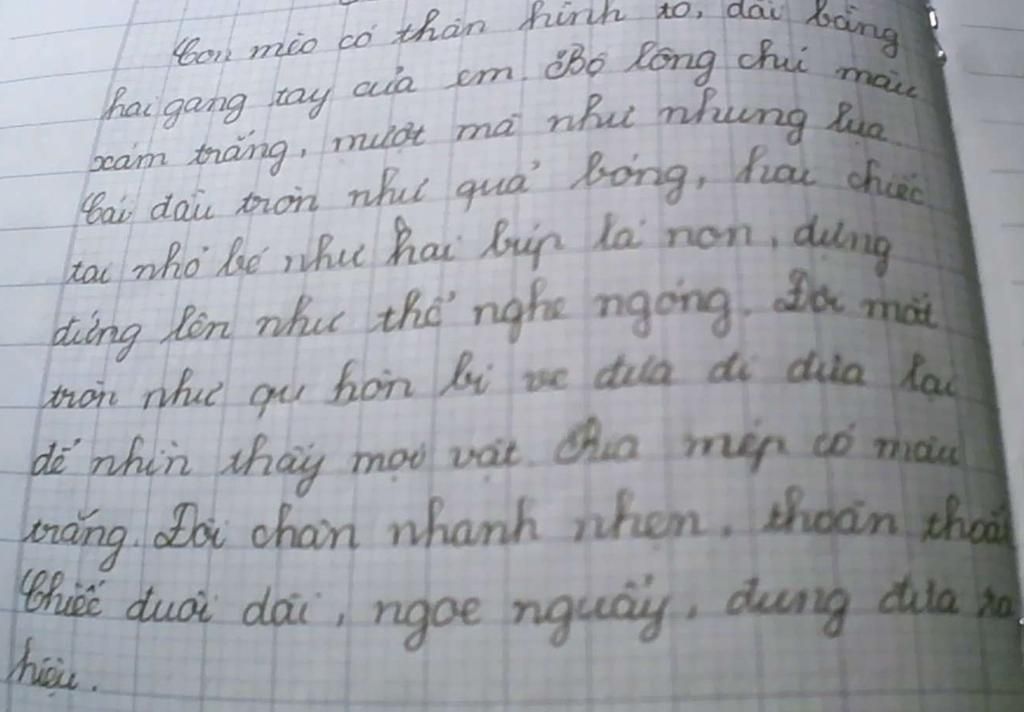 Con mèo có thân hình to, dài bằng
hai gang tay của em. Bộ lông chú màu
xám trắng, mượt mà như nhung lụa.
Cái đầu tròn như quả bóng, hai chiếc
tai nhỏ bé như hai búp lá non, dựng
đứng lên như thể nghe ngóng. Đôi mắt
tròn như hòn bi ve đưa đi đưa lại
để nhìn thấy mọi vật. mép có màu
trắng. Đôi chân nhanh nhẹn, thoăn thoắt
Chiếc đuôi dài, ngoe nguẩy, đung đưa ra
hiệu.